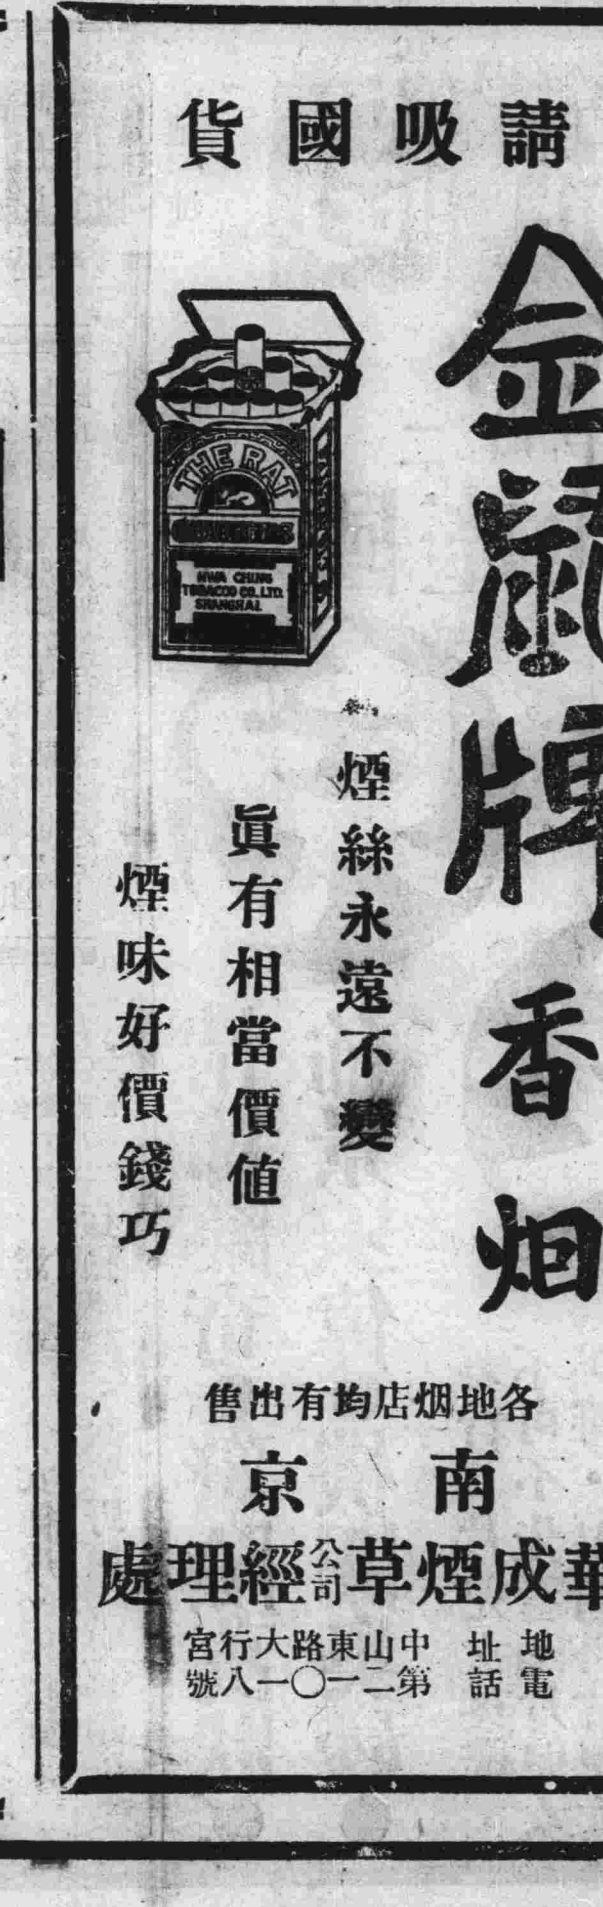 請吸國貨
金鼠牌
香烟
THE RAT
CIGARETTES
HWA CHING
TOBACCO CO. LTD.
SHANGHAI
煙絲永遠不變
眞有相當價值
煙味好價錢巧
各地烟店均有出售
南京
華成煙草公司經理處
地址 中山東路大行宮
電話 第二一〇一八號